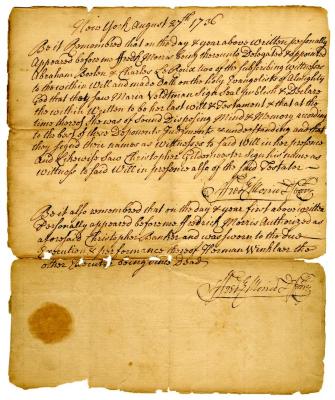 New York August 27th 1736
Be it Remembered that on the day & year above written personally
Appeared before me Fredk Morris Thereunto Delegated & appointed
Abraham & Charles two of the subscribing witnesses
to the within will and made oath on the Holy Evangelists of Almighty
God that they saw Maria Veldtman Sign Seal Publish & Declare
the within written to be her last will & Testament & that at the
time thereof she was of Sound Disposing Mind & Memory according
to the best of these Deponents Judgment & understanding and that
they signed their names as witnesses to said will in her presence
and Likewise saw Christopher sign his name as
witness to said will in presence also of the said Testator
Fred Morris D Secry
Be it also remembered that on the day & year first above written
Personally appeared before me Fredrick Morris Authorized as
aforesaid Christopher Banker and was sworn to the due
Execution & performance thereof Herman Winkler the
other Executor being since dead
Fred Morris D Secry